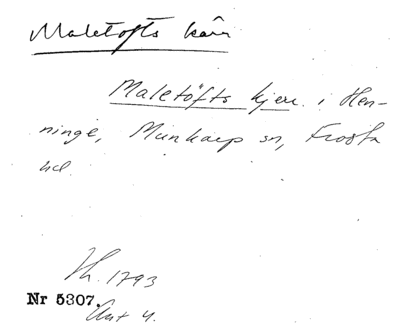 Maletofts kärr
Maletöfts kjerr i Hen-
ninge, Munkarp sn, Frosta
hd.
Th. 1793
Nr 5307.
Ant 4.